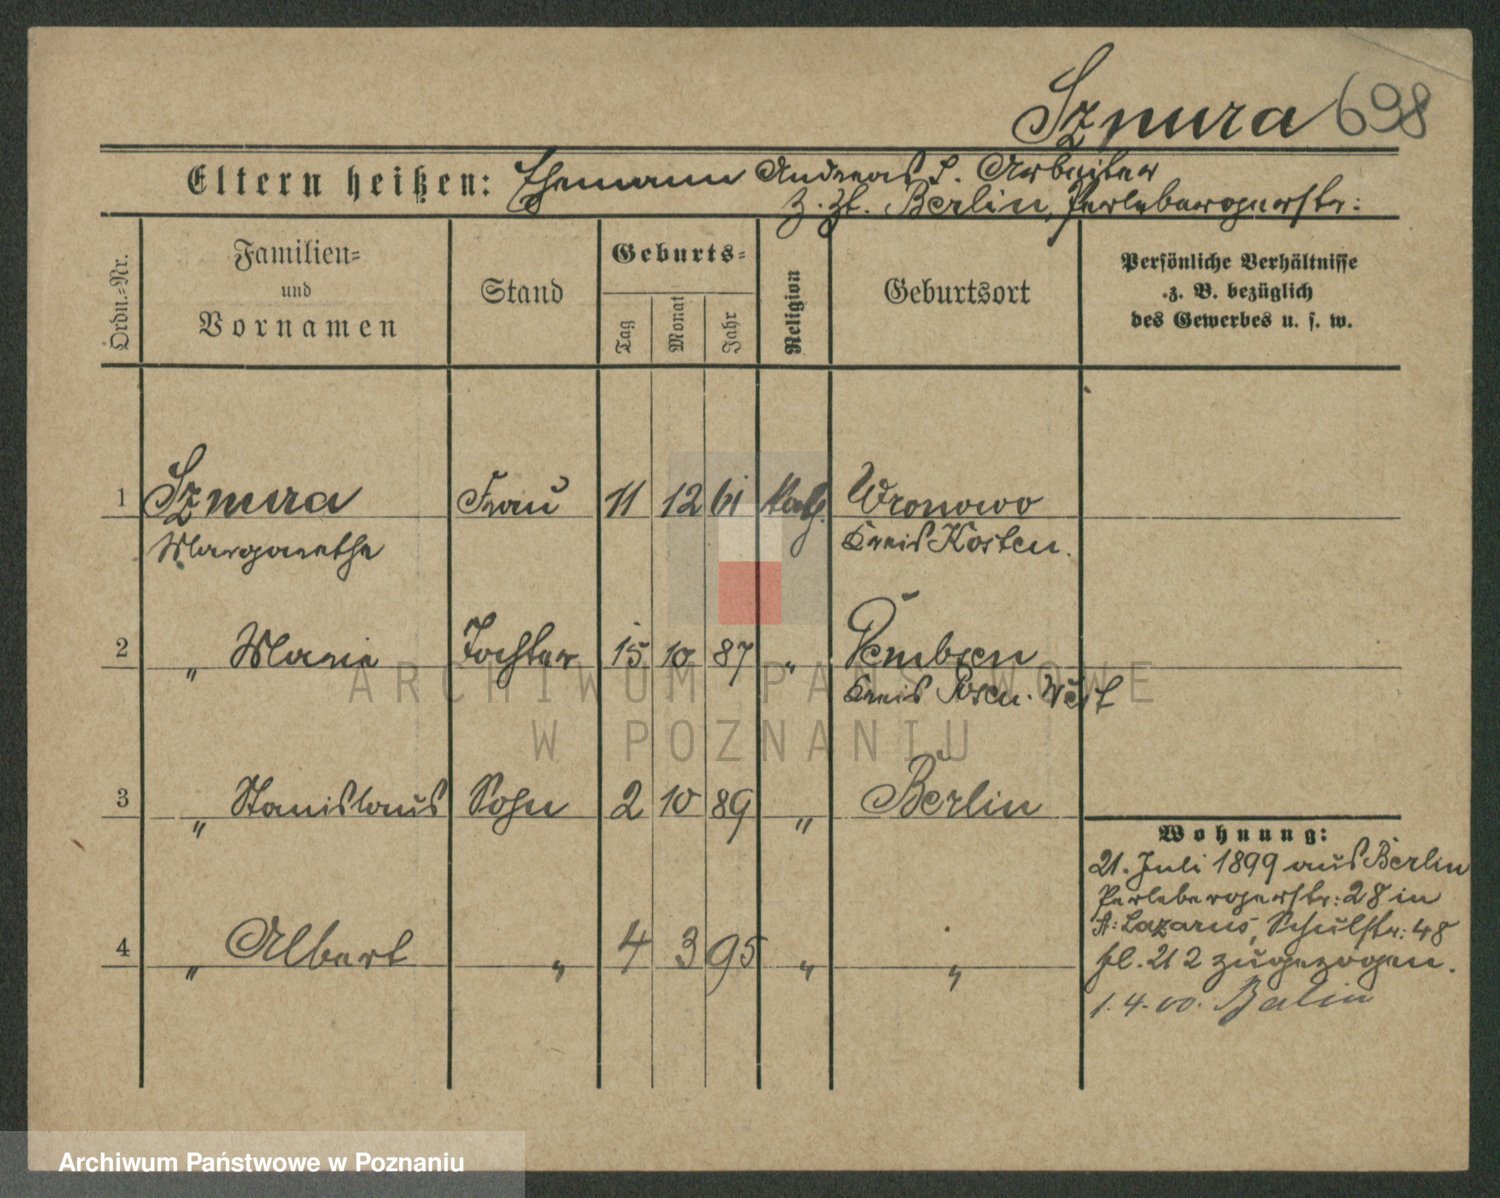 Szmura 698
Eltern heißen: Ehemann Andreas S. Arbeiter
z. Zt. Berlin, Perlebergerstr:
Ordn.-Nr.
Familien-
und
Vornamen
Stand
Geburts-
Tag
Monat
Jahr
Religion
Geburtsort
Persönliche Verhältnisse
z. B. bezüglich
des Gewerbes u. s. w.
1 Szmura Frau 11 12 61 Kath. Wronowo
Margarethe Kreis Kosten.
2 " Marie Tochter 15 10 87 " Dembsen
Kreis Posen. West
3 " Stanislaus Sohn 2 10 89 " Berlin
4 " Albert " 4 3 95 " "
Wohnung:
21. Juli 1899 aus Berlin
Perlebergerstr: 28 in
St: Lazarus, Schulstr: 48
fl. 212 zugezogen.
1.4.00. Berlin
ARCHIWUM PAŃSTWOWE
W POZNANIU
Archiwum Państwowe w Poznaniu